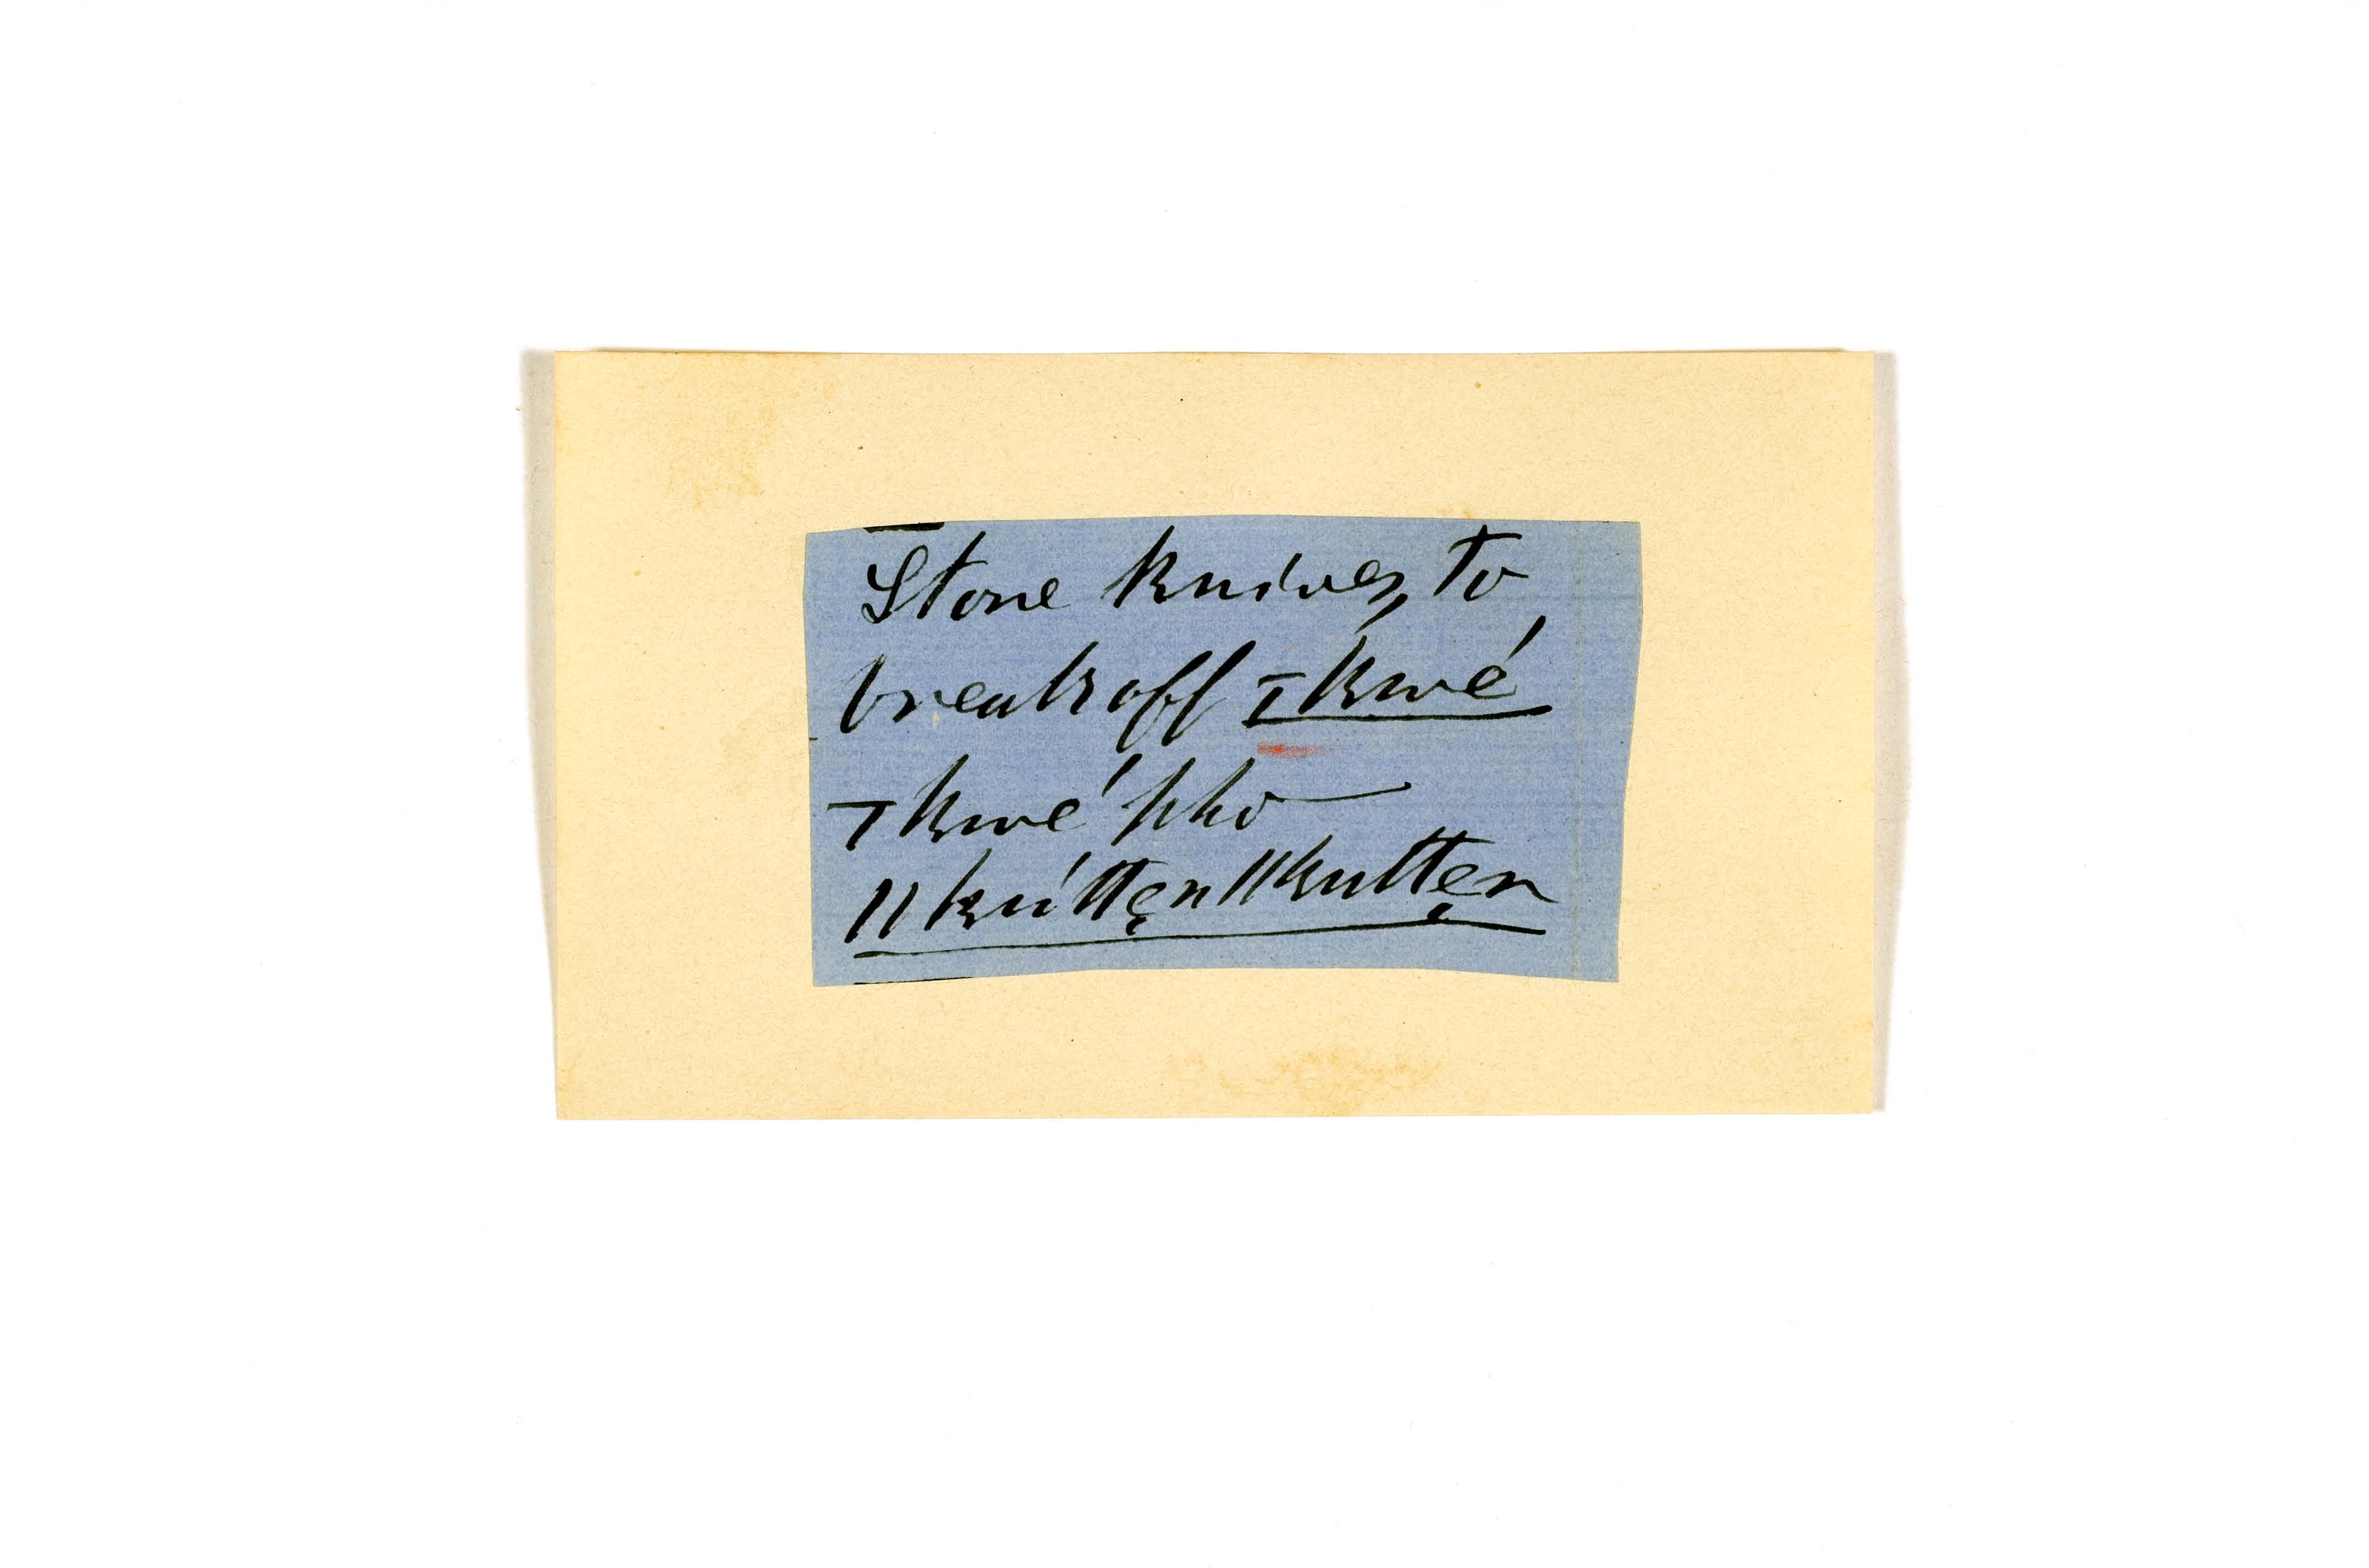 Stone knives, to
break off ⊤kwé
⊤kwé pho—
ǁkútten̠ǁkutten